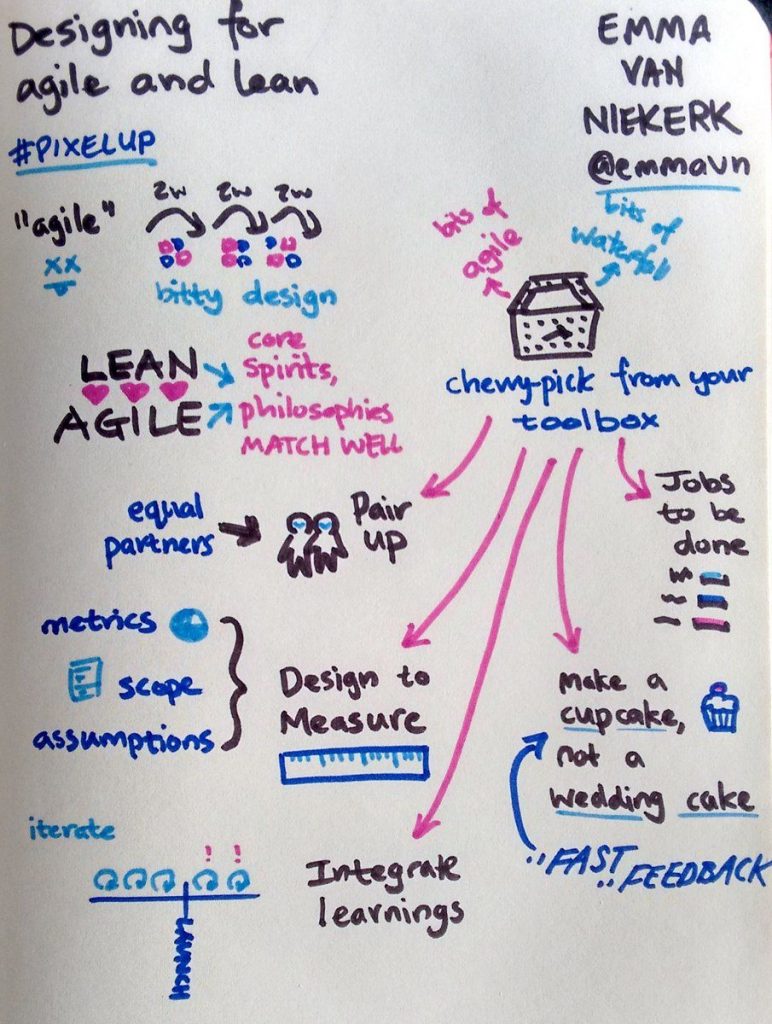 Designing for
agile and lean
#PIXELUP
EMMA
VAN
NIEKERK
@emmavn
"agile"
2W 2W 2W
xx
bitty design
bits of
agile
bits of
waterfall
LEAN
AGILE
core
Spirits,
philosophies
MATCH WELL
cherry-pick from your
toolbox
equal
partners
Pair
up
Jobs
to be
done
metrics
scope
assumptions
Design to
Measure
make a
cupcake,
not a
wedding cake
FAST
FEEDBACK
iterate
! !
LAUNCH
Integrate
learnings